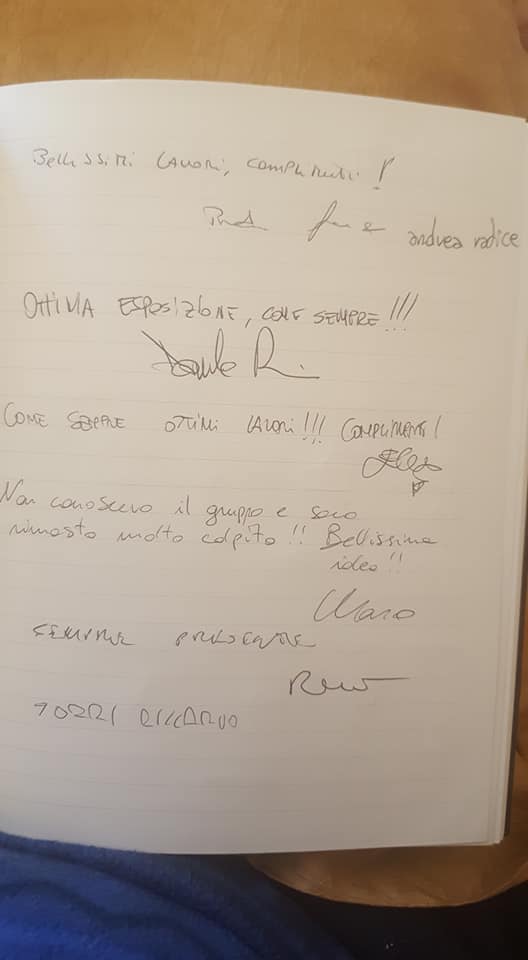 Bellissimi lavori, complimenti!
andrea radice
OTTIMA ESPOSIZIONE, COME SEMPRE!!!
COME SEMPRE OTTIMI LAVORI!!! COMPLIMENTI!
Non conoscevo il gruppo e sono
rimasto molto colpito!! Bellissima
idea!!
SEMPRE PRESENTE
TORRI RICCARDO